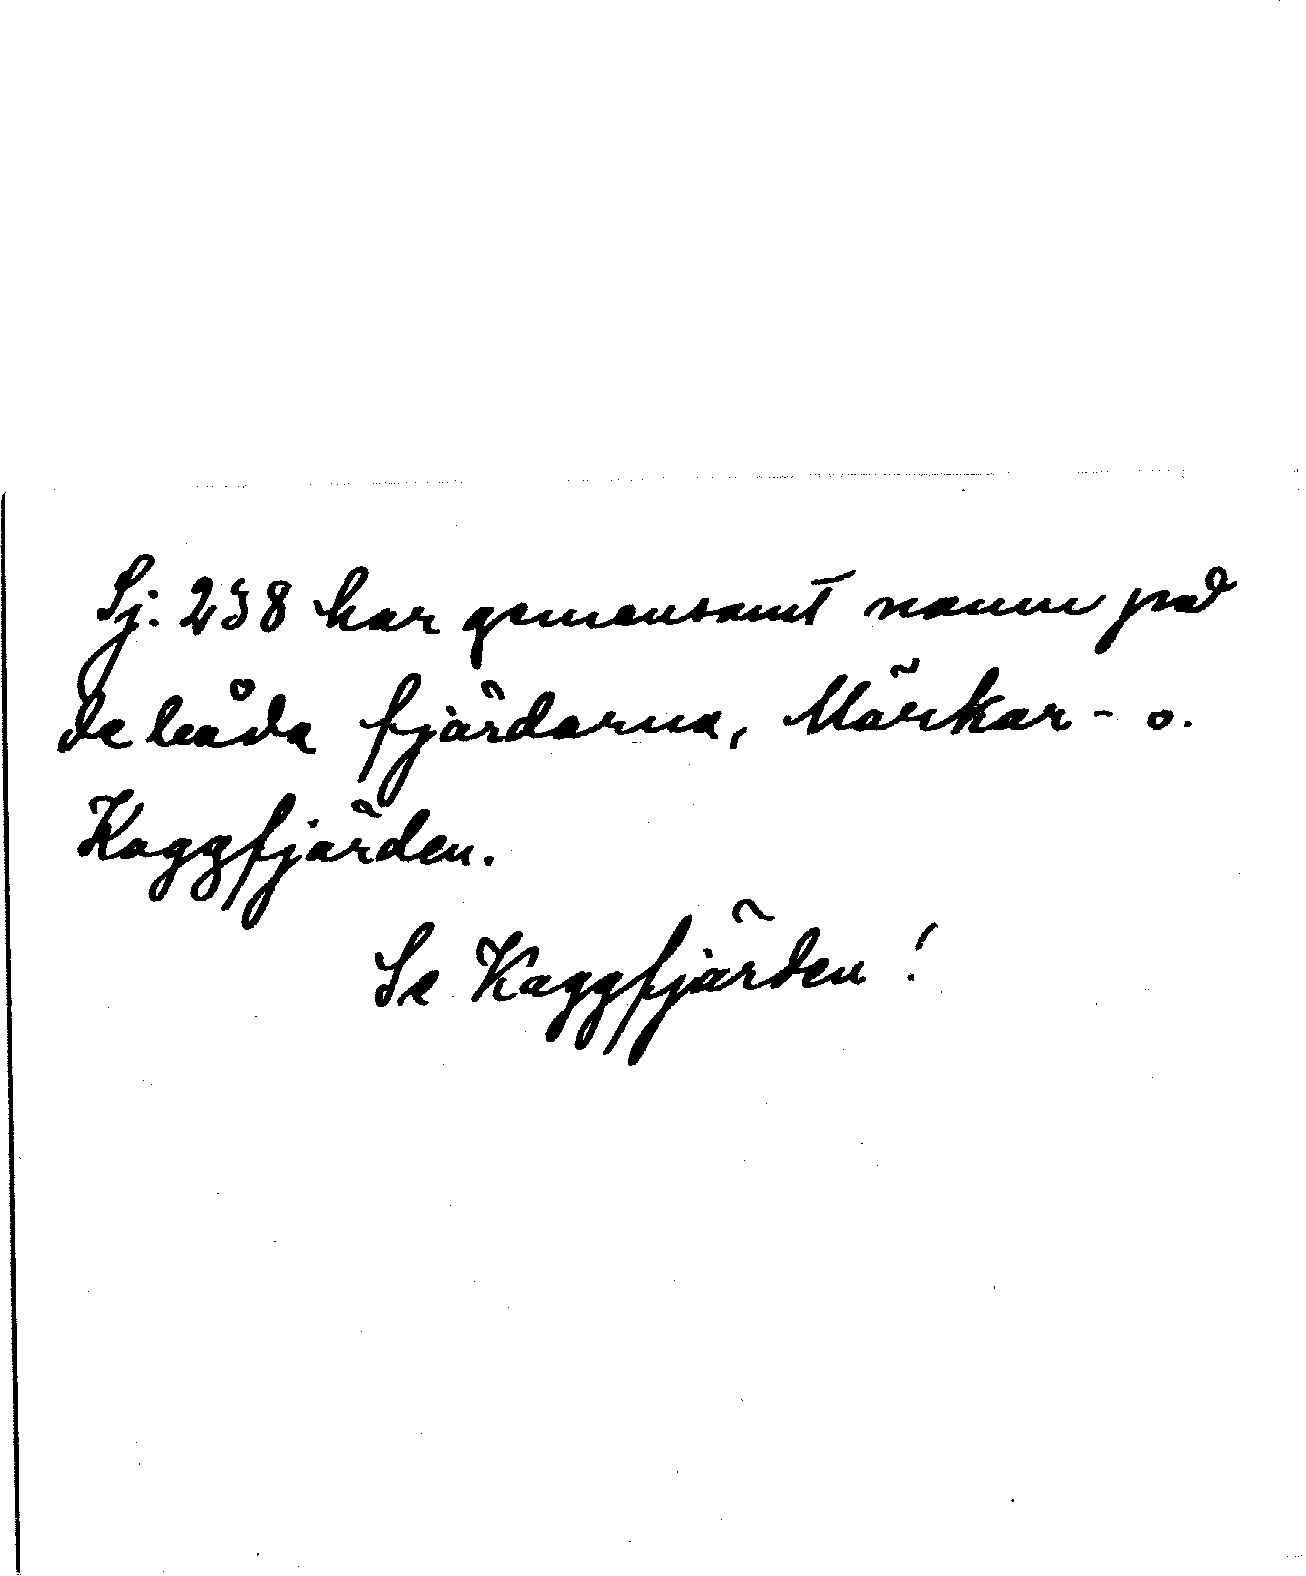 Sj. 238 har gemensamt namn på
de båda fjärdarna, Märkar- o.
Kaggfjärden.
Se Kaggfjärden!